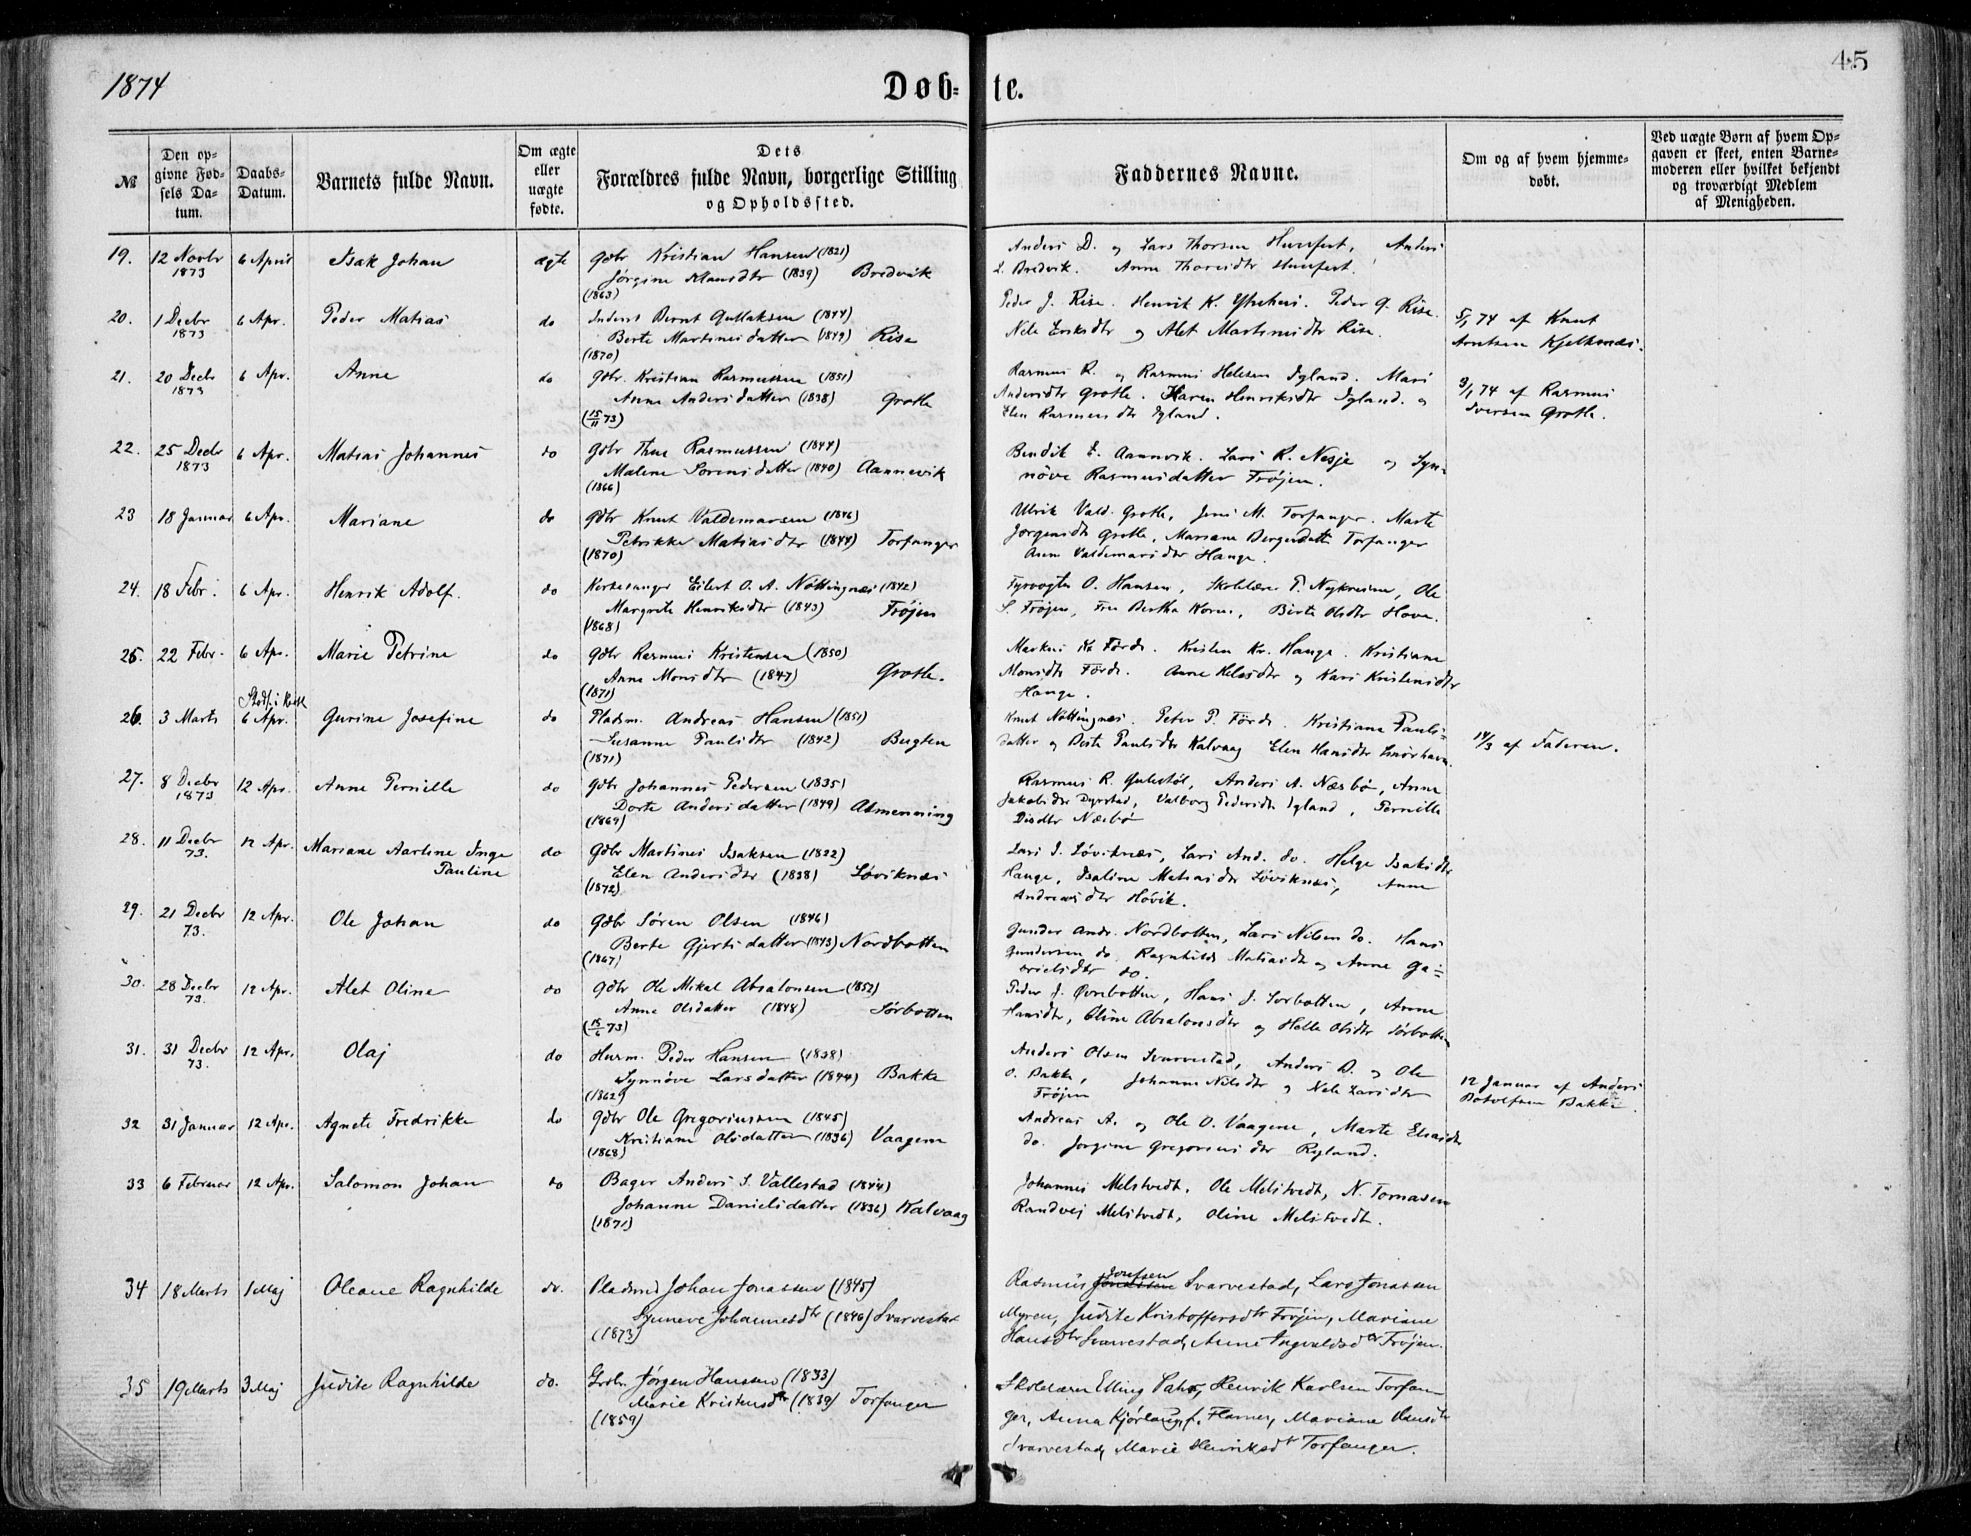 1874
Døb-
te.
45
№
Den op-
givne Fød-
sels Da-
tum.
Daabs-
Datum.
Barnets fulde Navn.
Om ægte
eller
uægte
fødte.
Dets
Forældres fulde Navn, borgerlige Stilling
og Opholdssted.
Faddernes Navne.
Om og af hvem hjemme-
døbt.
Ved uægte Børn af hvem Op-
gaven er skeet, enten Barne-
moderen eller hvilket bekjendt
og troværdigt Medlem
af Menigheden.
19. 12 Novbr 6 April Isak Johan ægte Gdbr Kristian Hansen (1821)
1873 Jørgine Monsdtr (1839) Bredvik
(1863)
Anders D. og Lars Thorsen Anders
L. Bredvik. Anne
20. 1 Decbr 6 Apr. Peder Matias do Inderst Bernt Gullaksen (1844)
1873 Berte Martinusdatter (1849) Rise
(1870)
Peder J. Rise. Henrik K. Peder G. Rise.
Nele og Alet Martinusdtr Rise.
5/1 74 af Knut
Arntsen
21. 20 Decbr 6 Apr. Anne do Gdbr. Kristian Rasmussen (1851)
1873 Anne Andersdatter (1838) Grotle
(15/11 73)
Rasmus R. og Rasmus Helesen Igland. Mari
Andersdtr Grotle. Karen Henriksdtr Igland. og
Elen Rasmusdtr Igland.
3/1 74 af Rasmus
Iversen Grotle.
22. 25 Decbr 6 Apr. Matias Johannes do Gdbr Thue Rasmussen (1844)
1873 Malene Sørensdatter (1840) Aannevik
(1866)
Bendik E. Aannvik. Lars R. Nesje og Syn-
növe Rasmusdatter Frøjen.
23 18 Januar 6 Apr. Mariane do Gdbr Knut Valdemarsen (1846)
Petrikke Matiasdtr (1844) Torfanger
(1870)
Ulrik Vald. Grotle, Jens M. Torfanger. Marte
Jørgensdtr Grotle, Mariane Torfanger
Anne Valdemarsdtr Hauge.
24. 18 Febr. 6 Apr. Henrik Adolf. do Kirkesanger Eilert O. A. Nøttingnes (1842)
Margrete Henriksdtr (1843) Frøjen
(1868)
Fyrvogter O. Hansen, Skolelærer P. Ole
S. Frøjen, Fru Bertha Berte Olsdtr Hove.
25. 22 Febr. 6 Apr. Marie Petrine do Gdbr Rasmus Kristensen (1850)
Anne Monsdtr (1847) Grotle.
(1871)
Markus Førde. Kristen Kr. Hauge. Kristiane
Monsdtr Førde. Anne Helesdtr og Kari Kristensdtr
Hauge.
26. 3 Marts 6 Apr. Gurine Josefine do Pladsm. Andreas Hansen (1851)
Susanne Paulsdtr (1842) Bugten
(1871)
Knut Nøttingnes. Peter P. Førde. Kristiane Pauls-
datter og Berte Paulsdtr Kalvaag Elen Hansdtr Smørhavn.
14/3 af Faderen.
27. 8 Decbr 12 Apr. Anne Pernille do Gdbr Johannes Pedersen (1835)
1873 Dorte Andersdatter (1849) Almenning
(1869)
Rasmus R. Gulestøl, Anders A. Næsbø, Anne
Jakobsdtr Dyrstad, Valborg Pedersdtr Igland, Pernille
Næsbø
28. 11 Decbr 12 Apr. Mariane Aartine Inge do Gdbr Martines Isaksen (1822)
73. Pauline Elen Andersdtr (1838) Løviknes
(1872)
Lars J. Løviknes, Lars And. do. Helge Isaksdtr
Hauge, Isaline Matiasdtr Løviknes, Anne
Andreasdtr Høvik.
29. 21 Decbr 12 Apr. Ole Johan do Gdbr Søren Olsen (1846)
73. Berte Gjertsdatter (1843) Nordbotten
(1867)
Gunder Andr. Nordbotten, Lars Nilsen do. Hans
Gundersen do. Ragnhilde Matiasdtr og Anne Ga-
brielsdtr do.
30. 28 Decbr 12 Apr. Alet Oline do Gdbr Ole Mikal Absalonsen (1852)
73. Anne Olsdatter (1848) Sørbotten
(15/6 73)
Peder J. Øvrebotten, Hans J. Sørbotten, Anne
Hansdtr, Oline Absalonsdtr og Helle Olsdtr Sørbotten
31. 31 Decbr 12 Apr. Olaj do Husm. Peder Hansen (1838)
73. Synnøve Larsdatter (1844) Bakke
(1862)
Anders Olsen Svarvestad, Anders D. og Ole
O. Bakke, Johanne Nilsdtr og Nele Larsdtr
Frøjen
12 Januar af Anders
Botolfsen Bakke.
32 31 Januar 12 Apr. Agnete Fredrikke do Gdbr Ole Gregoriussen (1845)
Kristiane Olsdatter (1836) Vaagene
(1868)
Andreas A. og Ole O. Vaagene, Marte Eliasdtr
do. Jørgine Gregoriusdtr Ryland.
33 6 Februar 12 Apr. Salomon Johan do Bager Anders S. Vallestad (1844)
Johanne Danielsdatter (1836) Kalvaag
(1871)
Johannes Melstvedt, Ole Melstvedt, N. Tomasen
Randvej Melstvedt, Oline Melstvedt.
34 18 Marts 1 Maj Oleane Ragnhilde do. Pladsmd Johan Jonassen (1845)
Synneve Johannesdtr (1846) Svarvestad
(1873)
Rasmus Josefsen Svarvestad, Lars Jonassen
Myren, Judite Kristoffersdtr Frøjen, Mariane
Hansdtr Svarvestad, Anne Ingvaldsdtr Frøjen.
35 19 Marts 3 Maj Judite Ragnhilde do. Grbr. Jørgen Hanssen (1833)
Marie Kristensdtr (1839) Torfanger
(1859)
Skolelærer Elling Henrik Karlsen Torfan-
ger, Anna Mariane Hansdtr
Svarvestad, Marie Henriksdtr Torfanger.